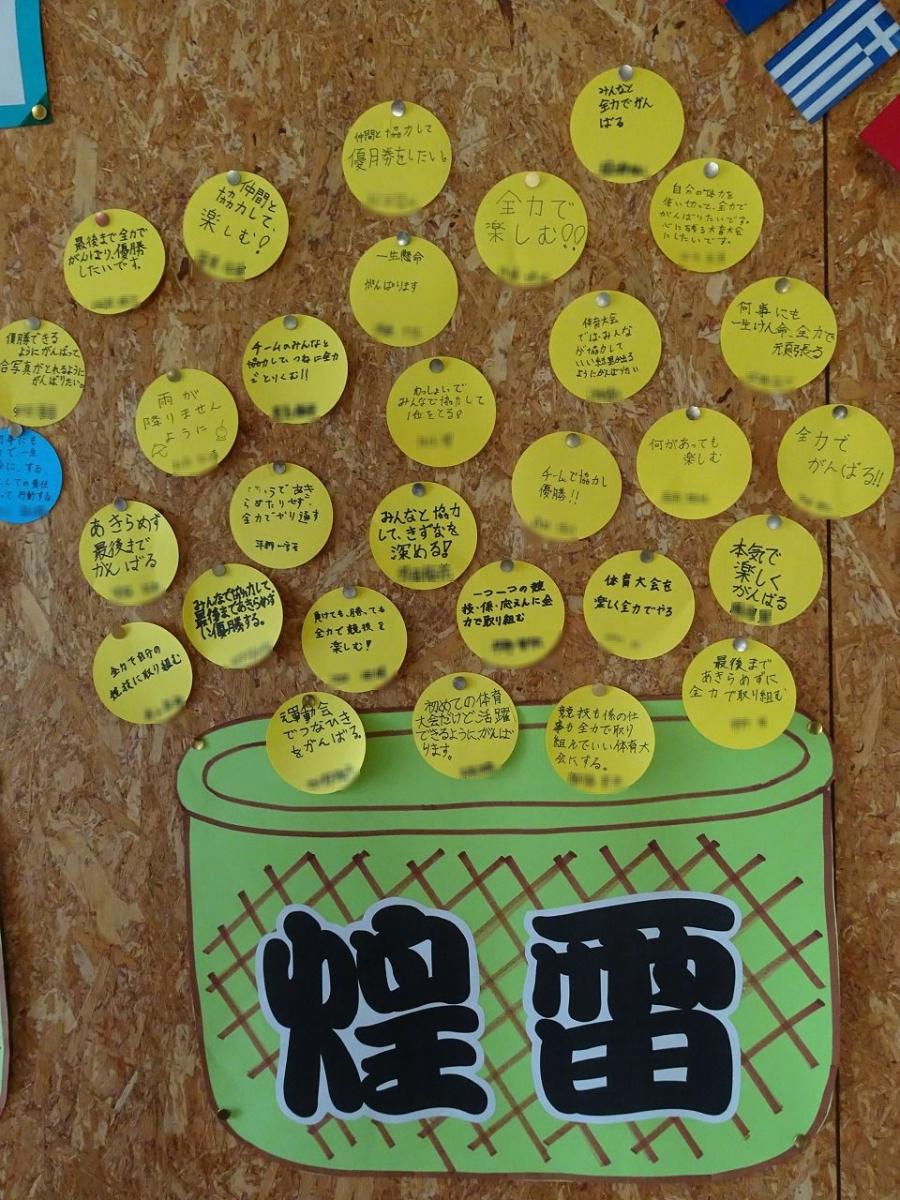 みんなと
全力でがん
ばる
仲間と協力して
優勝をしたい。
自分の協力を
使い切って、全力で
がんばりたいです。
心に残る大育大会
にしたいです。
仲間と
協力して、
楽しむ!
全力で
楽しむ!!
最後まで全力で
がんばり、優勝
したいです。
一生懸命
がんばります
何事にも
一生けん命、全力で
頑張る
体育大会
では、みんな
が協力して
いい結果が出る
ようにがんばりたい
優勝できる
ようにがんばって、
合写真がとれるように
がんばりたい。
チームのみんなと
協力して、つねに全力
でとりくむ!!
わっしょいで
みんなで協力して
1位をとる!
雨が
降りません
ように
何があっても
楽しむ
全力で
がんばる!!
チームで協力し
優勝!!
で、一生
に、する
しての責任
って、行動する。
とちゅうであき
らめたりせず
全力でやり通す
みんなと協力
して、きずなを
深める!
あきらめず
最後まで
がんばる
本気で
楽しく
がんばる
みんなで協力して、
最後まであきらめず
に優勝する。
一つ一つの競
技・係・応えんに全
力で取り組む
体育大会を
楽しく全力でやる
負けても、勝っても
全力で競技を
楽しむ!
全力で自分の
競技に取り組む
最後まで
あきらめずに
全力で取り組む
運動会
でつなひき
をがんばる。
初めての体育
大会だけど活躍
できるようにがんば
ります。
競技も係の仕
事も全力で取り
組んでいい体育大
会にする。
煌雷